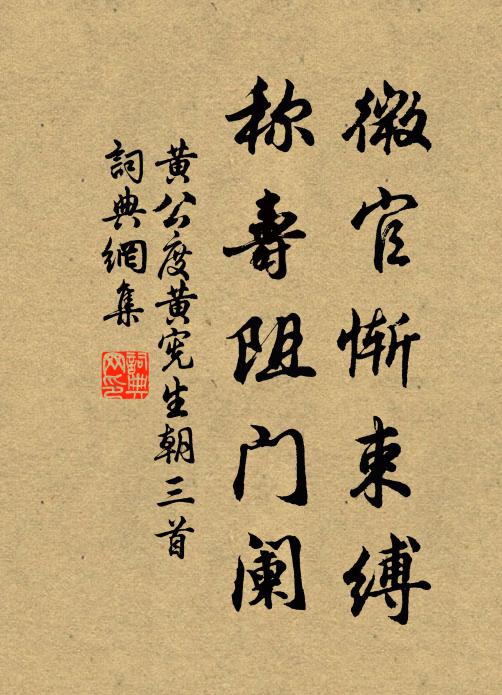 微官惭束缚
称寿阻门阑
黄公度黄宪生朝三首
詞典網集
詞典
网印